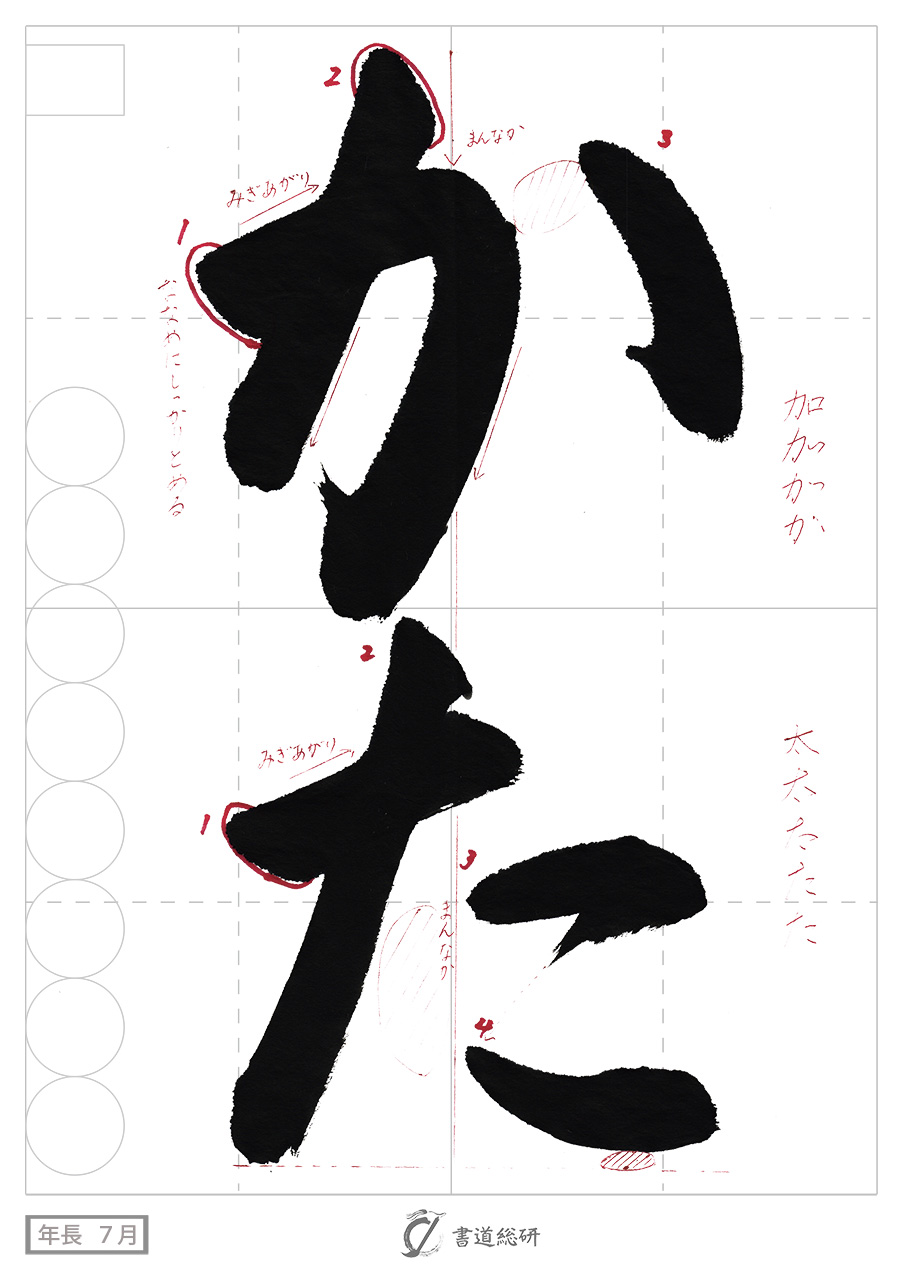 かた
1
2
3
みぎあがり
まんなか
ななめにしっかりとめる
加加かか
1
2
3
4
みぎあがり
まんなか
太太たたた
年長 7月
書道総研